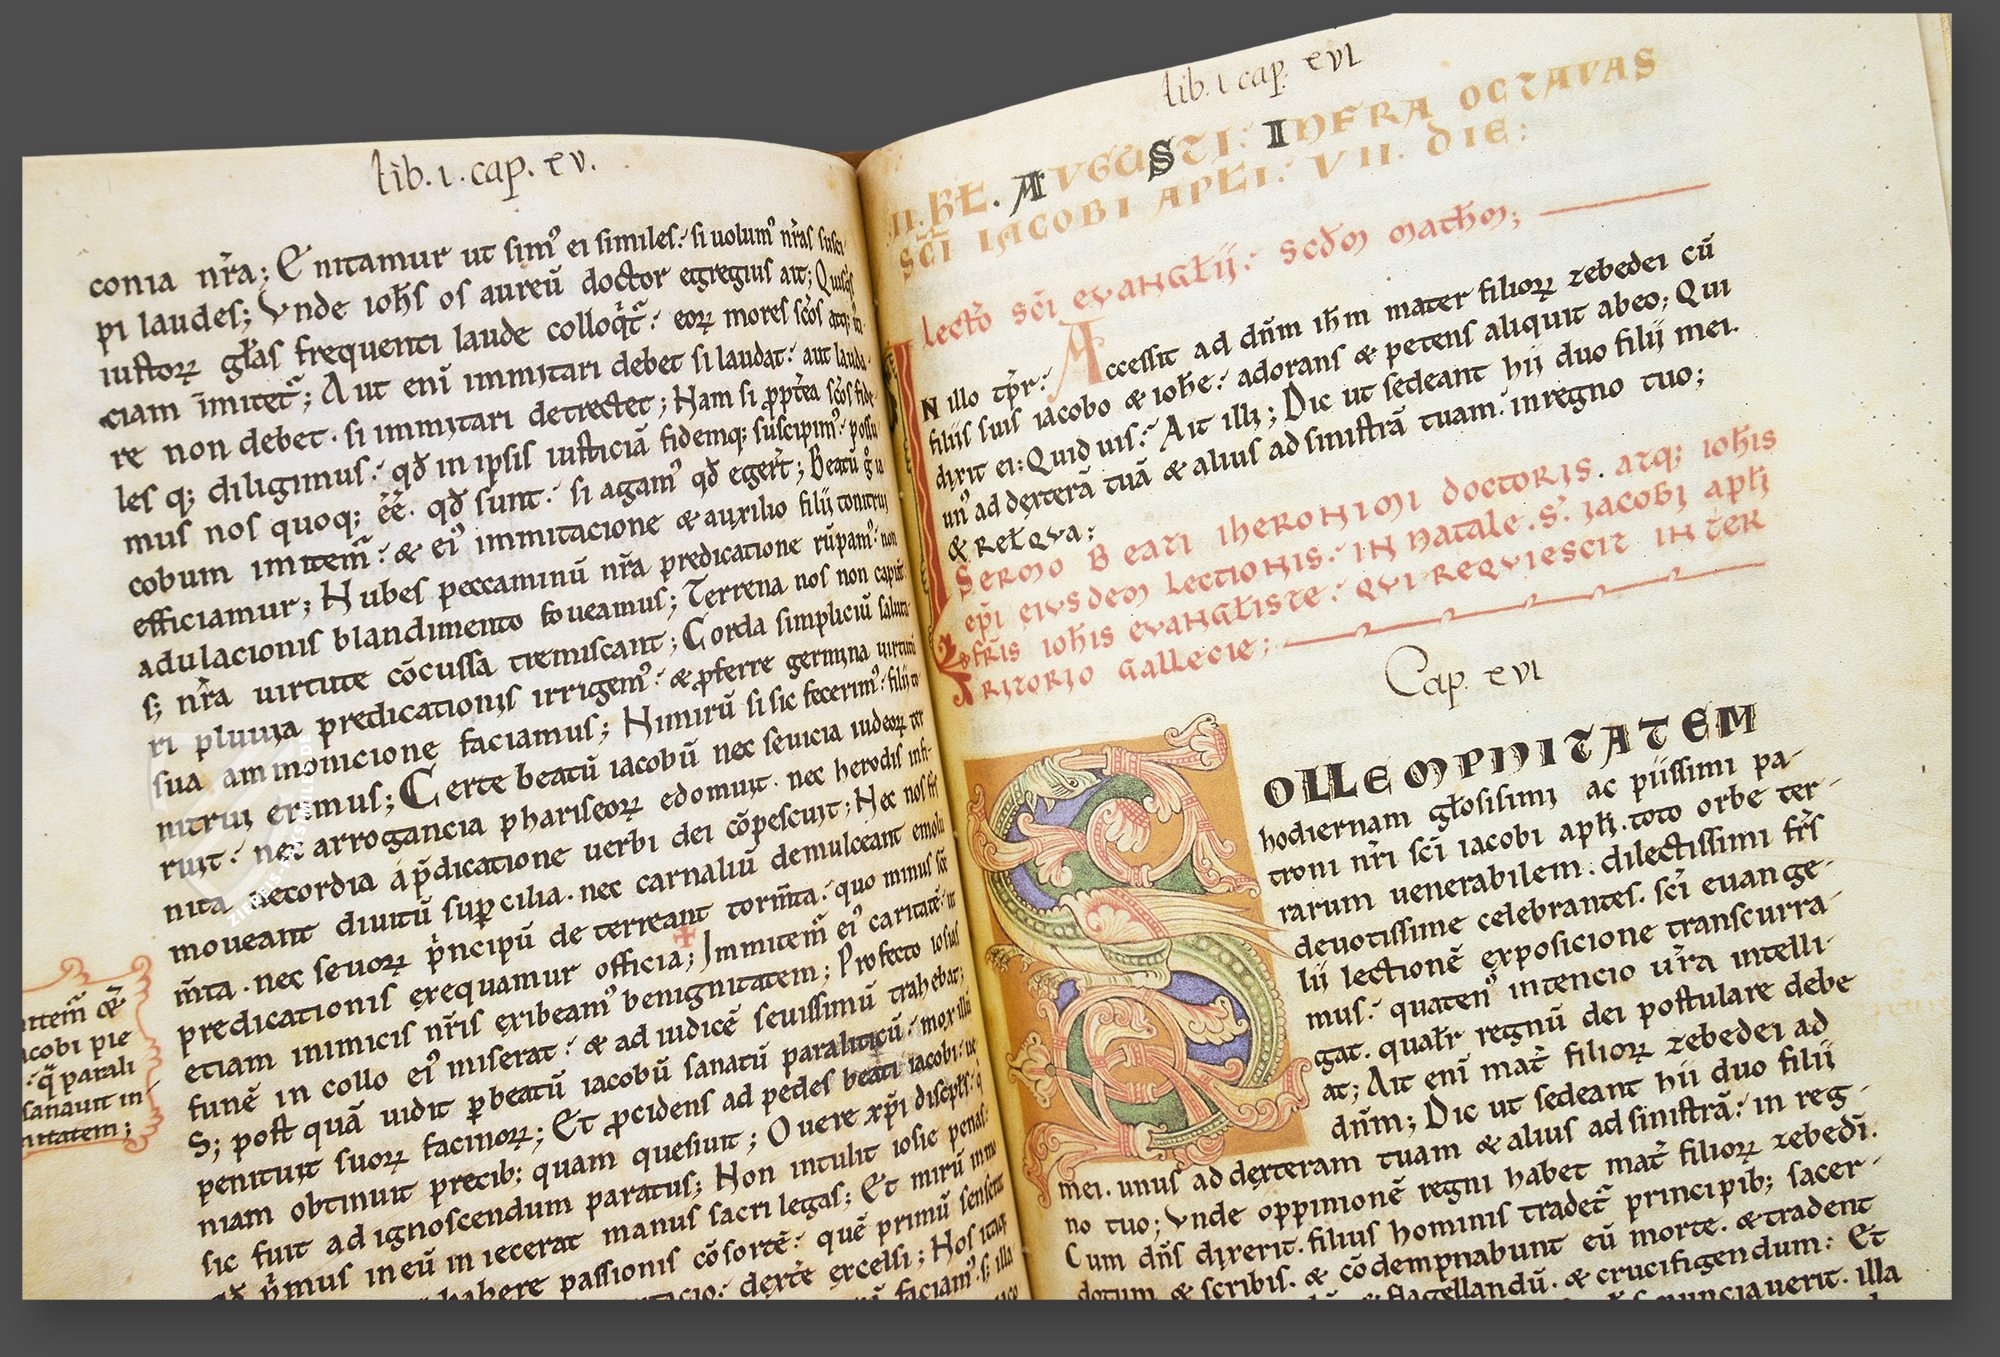 lib. i. cap. xv.
conia nr̄a; Enitamur ut simꝰ ei similes: si uolumꝰ nr̄as susci
pi laudes; Vnde ioh̄s os aureū doctor egregius ait;
iustoꝝ gl̄as frequenti laude colloq̄t̄: eoꝝ mores sc̄os atq;
ciam imitet̄; Aut eni immitari debet si laudat: aut lauda
re non debet. si immitari detrectet; Nam si ꝓpt̄ea sc̄os fide
les q; diligimus: qđ in ipsis iusticiā fidemq; suscipimꝰ: possu
mus nos quoq; ēē. qđ sunt: si agamꝰ qđ eger̄t; Beatū g̊ ia
cobum imitem̄: & eiꝰ immitacione & auxilio filij tonitrui
efficiamur; Nubes peccaminū nr̄a predicatione rūpamꝰ: non
adulacionis blandimento foueamus; Terrena nos non capiāt
s; nr̄a uirtute cōcussa tremiscant; Corda simpliciū saluta
ri pluuia predicationis irrigemꝰ: & ꝓferre germina uirtutū
sua ammonicione faciamus; Nimirū si sic fecerimꝰ: filij to
nitrui erimus; Certe beatū iacobū nec seuicia iudeoꝝ ter
ruit: nec arrogancia phariseoꝝ edomuit. nec herodis infi
nita uecordia a p̄dicatione uerbi dei cōpescuit; Nec nos
moueant diuitū suꝑcilia. nec carnaliū demulceant emolu
m̄ta. nec seuoꝝ p̄ncipū de terreant torm̄ta: quo minus
predicationis exequamur officia; Immitem̄ eiꝰ caritatē: ut
etiam inimicis nr̄is exibeamꝰ benignitatem; Profecto iosias
funē in collo eiꝰ miserat: & ad iudicē seuissimū trahebat;
S; post quā uidit ꝑ beatū iacobū sanatū paraliticū: mox illū
penituit suoꝝ facinoꝝ; Et ꝓcidens ad pedes beati iacobi: ue
niam obtinuit precib; quam quesiuit; O uere xp̄i discipl̄s: q
sic fuit ad ignoscendum paratus; Non intulit iosie penas:
qđ p̄mus in eū in iecerat manus sacri legas; Et mirū in mo
habere passionis cōsortē: quē primū senserat
dext̄e excelsi; Hos itaq;
faciamꝰ: s; illa
item̄
acobi pie
: q̄ parali
sanauit in
nitatem;
lib. i cap. xvi
.II. KL. AVGUSTI. INFRA OCTAVAS
SC̄I IACOBI APL̄I. VII. DIE:
Lectō sc̄i evangl̄ij: scđm math̄m;
N illo tp̄r: Accessit ad dn̄m ih̄m mater filioꝝ zebedei cū
filiis suis iacobo & ioh̄e: adorans & petens aliquit ab eo; Qui
dixit ei: Quid uis: Ait illi; Dic ut sedeant hij duo filij mei.
unꝰ ad dexterā tuā & alius ad sinistrā tuam: in regno tuo;
& rel̄qva;
Sermo Beati Iheronimi doctoris. atq; ioh̄is
ep̄i eiusdem lectionis: in natale. S. iacobi apl̄i
fr̄is ioh̄is evangl̄iste: qvi reqviescit in ter
ritorio Gallecie;
Cap. xvi
SOLLEMPNITATEM
hodiernam gl̄osissimi ac piissimi pa-
troni nr̄i sc̄i iacobi apl̄i. toto orbe ter-
rarum uenerabilem. dilectissimi fr̄s
deuotissime celebrantes. sc̄i euange-
lii lectionē exposicione transcurra-
mus: quatenꝰ intencio ur̄a intelli-
gat. qual̄r regnū dei postulare debe
at; Ait eni mat̄ filioꝝ zebedei ad
dn̄m; Dic ut sedeant hii duo filij
mei. unus ad dexteram tuam & alius ad sinistrā: in reg-
no tuo; Vnde oppinionē regni habet mat̄ filioꝝ zebedi.
Cum dn̄s dixerit. filius hominis tradet̄ principib; sacer-
dotum & scribis. & cōdempnabunt eū morte. & tradent
& flagellandū. & crucifigendum: Et
nunciauerit. illa